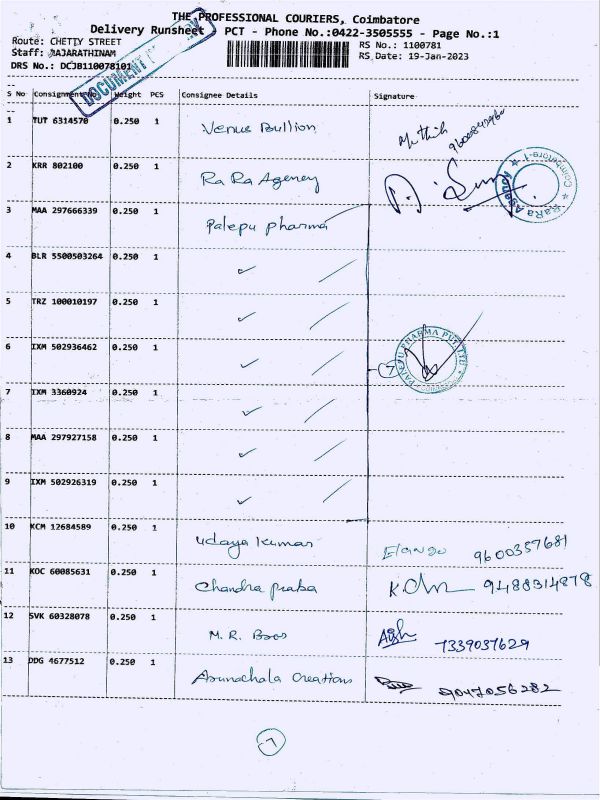 THE PROFESSIONAL COURIERS, Coimbatore
Delivery Runsheet PCT - Phone No.:0422-3505555 - Page No.:1
Route: CHETTY STREET RS No.: 1100781
Staff: RAJARATHINAM RS Date: 19-Jan-2023
DRS No.: DCJB110078101
DOCUMENT
S No Consignment No Weight PCS Consignee Details Signature
1 TUT 6314570 0.250 1 Venus Bullion Muthish
2 KRR 802100 0.250 1 Ra Ra Agency
RaRa Agency Coimbatore-1
3 MAA 297666339 0.250 1 Palepu pharma
4 BLR 5500503264 0.250 1
5 TRZ 100010197 0.250 1
6 IXM 502936462 0.250 1
7 PALEPU PHARMA PVT LTD
7 IXM 3360924 0.250 1
8 MAA 297927158 0.250 1
9 IXM 502926319 0.250 1
10 KCM 12684589 0.250 1 Udaya kumar Elango 9600357681
11 KOC 60085631 0.250 1 Chandra praba 9488314878
12 SVK 60328078 0.250 1 M.R. Bros 7339037629
13 DDG 4677512 0.250 1 Arunachala Creations 9047056282
7